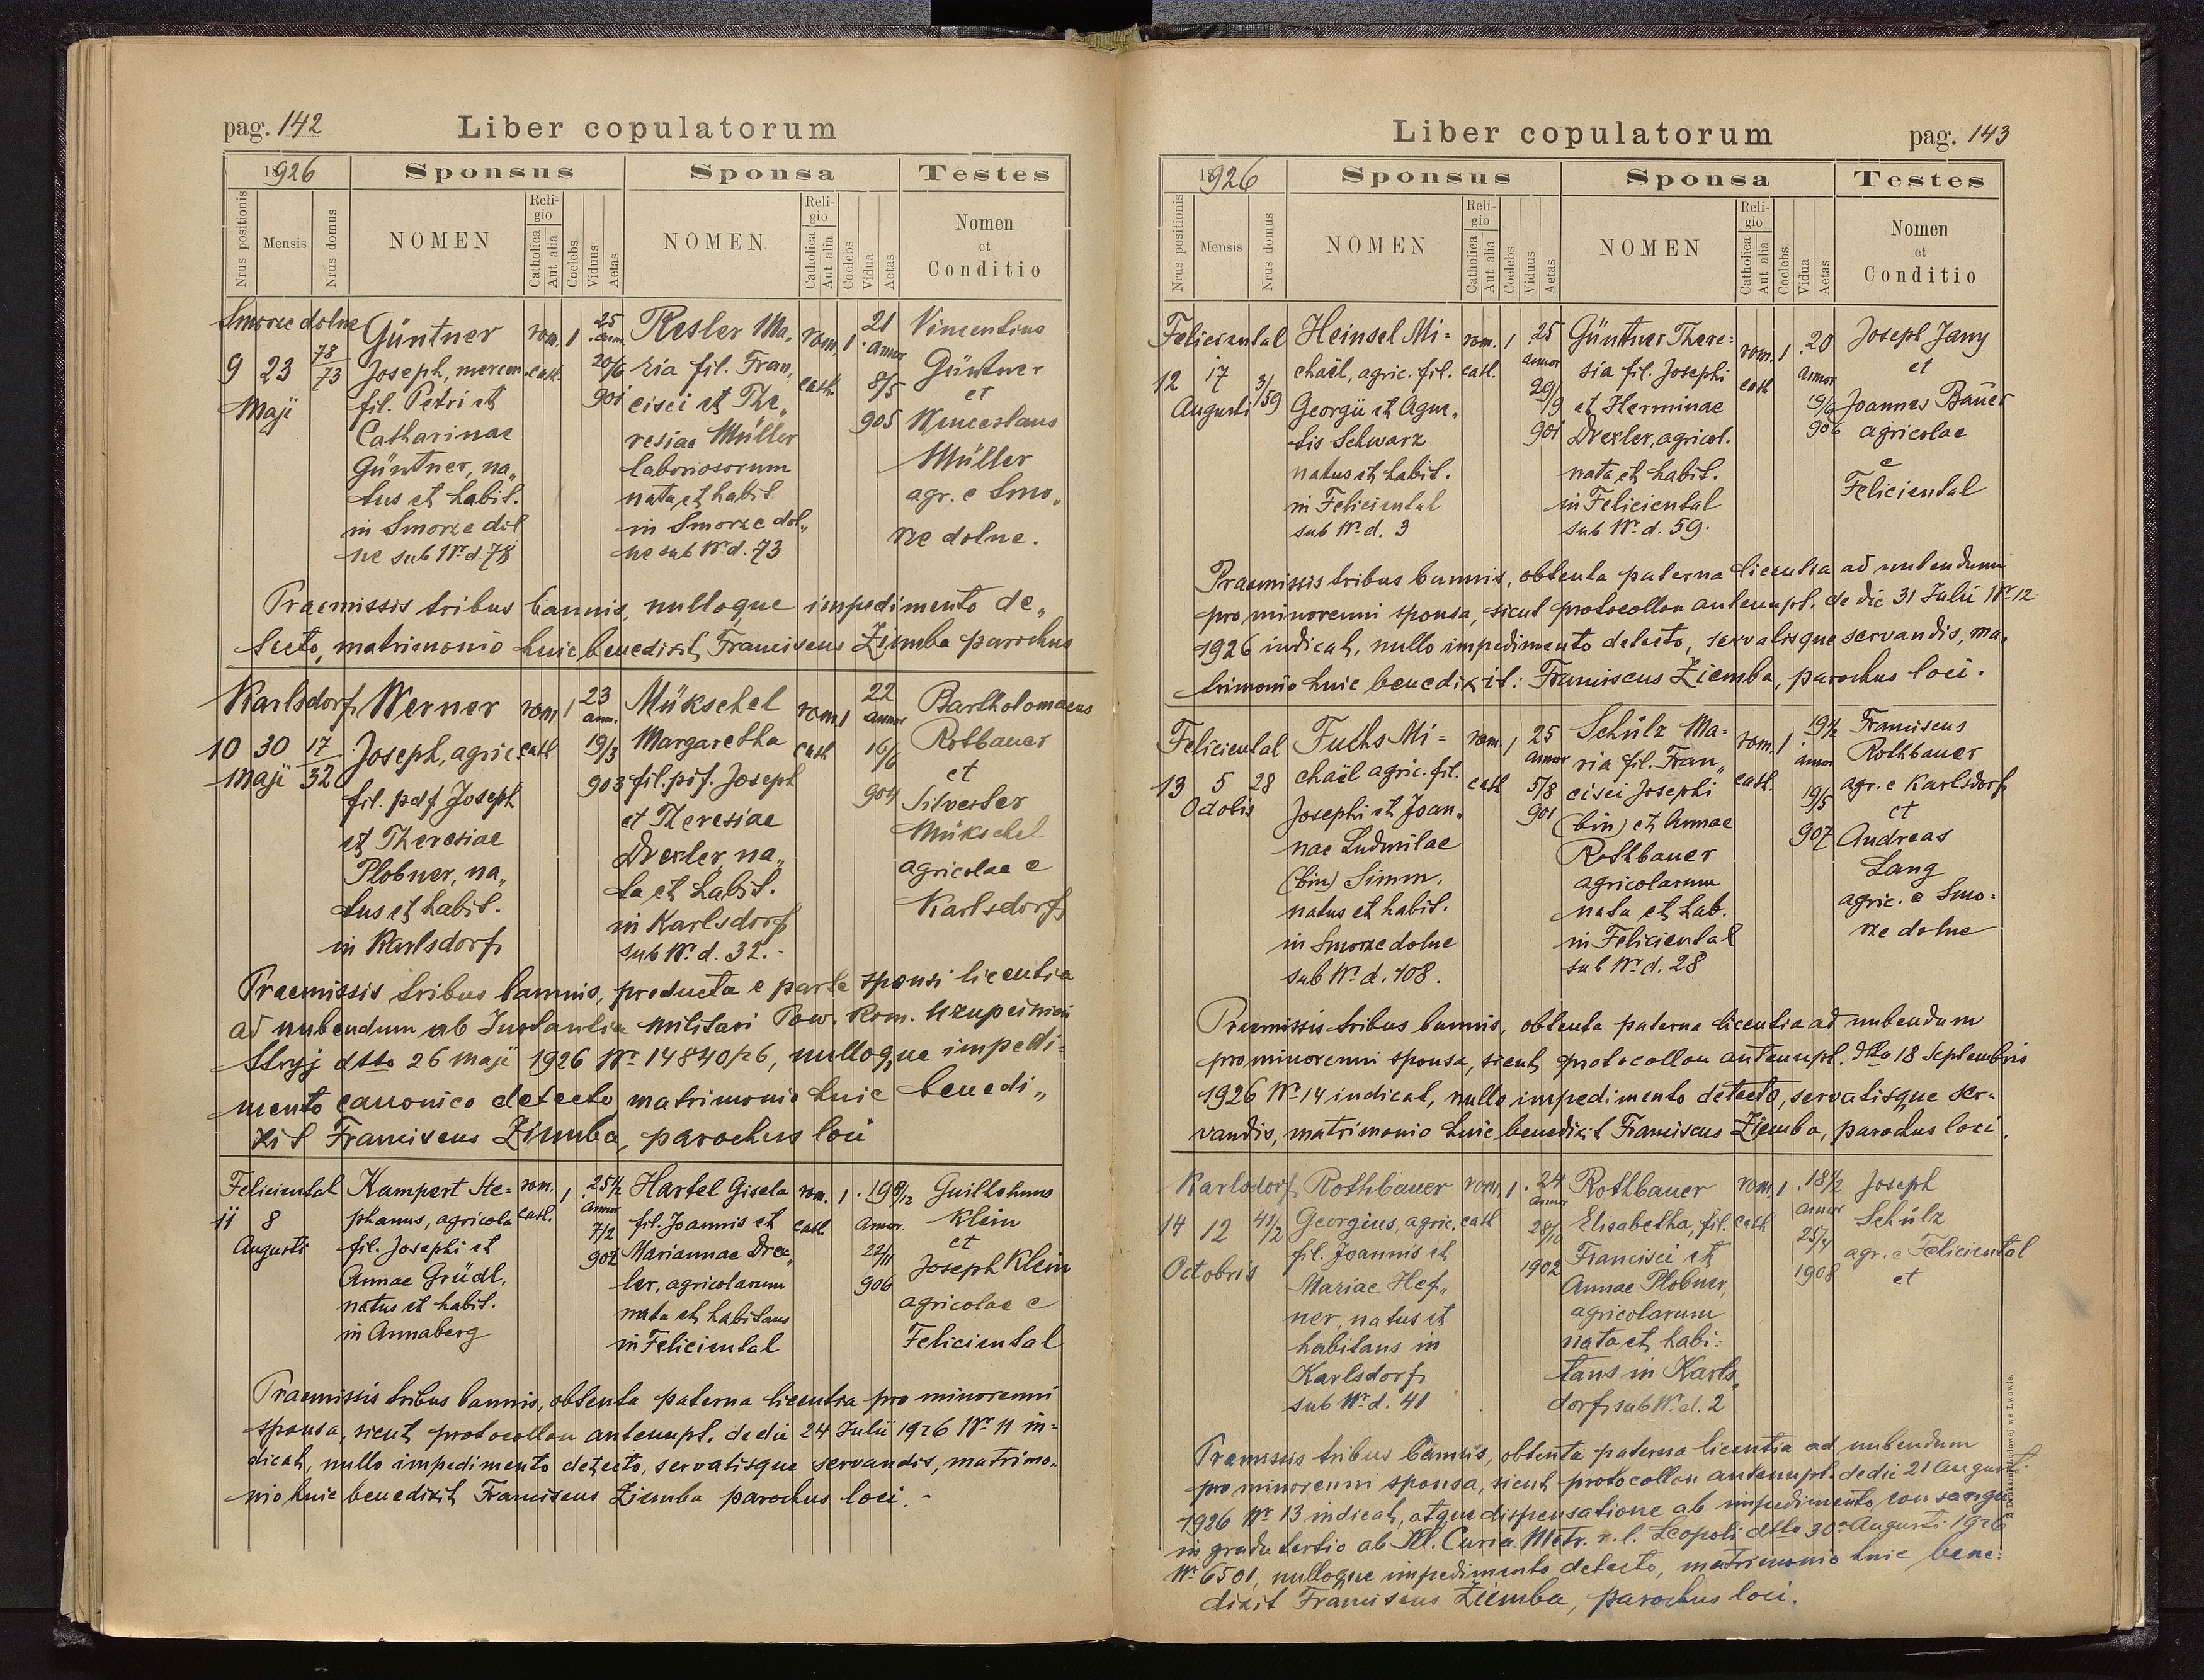 pag. 142
Liber copulatorum
1926
Sponsus
Sponsa
Testes
Nrus positionis
Mensis
Nrus domus
NOMEN
Religio
Catholica
Aut alia
Coelebs
Viduus
Aetas
NOMEN
Religio
Catholica
Aut alia
Coelebs
Vidua
Aetas
Nomen
et
Conditio
Smorze dolne
9 23
Maji
78
73
Güntner
Joseph, mercen.
fil. Petri et
Catharinae
Güntner, na„
tus et habit.
in Smorze dol
ne sub Nr. d 78
rom.
cath.
1
25
ann.
20/6
901
Resler Ma„
ria fil. Fran„
cisci et The„
resiae Müller
laboriosorum
nata et habit
in Smorze dol„
ne sub Nr. d. 73
rom.
cath.
1
21
annor
8/5
905
Vincentius
Güntner
et
Wenceslaus
Müller
agr. e Smo„
rze dolne.
Praemissis tribus bannis, nulloque impedimento de„
tecto, matrimonio huic benedixit Franciscus Ziemba parochus
Karlsdorf
10 30
Maji
17
32
Werner
Joseph, agric.
fil. pdf Joseph
et Theresiae
Plobner, na„
tus et habit.
in Karlsdorf
rom
cath.
1
23
ann.
19/3
903
Mükschel
Margaretha
fil. pdf. Joseph
et Theresiae
Drexler, na„
ta et habit.
in Karlsdorf
sub Nr. d. 32.-
rom
cath
1
22
annor
16/6
904
Bartholomaeus
Rotbauer
et
Silvester
Mükschel
agricolae e
Karlsdorf
Praemissis tribus bannis, producta e parte sponsi licentia
ad nubendum ab Instantia Militari Pow. Kom. Uzupełnień
Stryj dtto 26 Maji 1926 Nr. 14840/26, nulloque impedi=
mento canonico detecto matrimonio huic benedi„
xit Franciscus Ziemba, parochus loci
Feliciental
11 8
Augusti
Kampert Ste=
phanus, agricola
fil. Josephi et
Annae Grüdl,
natus et habit.
in Annaberg
rom.
cath.
1
25 1/2
annor
7/2
902
Hartel Gisela
fil. Joannis et
Mariannae Drex„
ler, agricolarum
nata et habitans
in Feliciental
rom.
cath
1
19 9/12
annor.
22/11
906
Guilhelmus
Klein
et
Joseph Klein
agricolae e
Feliciental
Praemissis tribus bannis, obtenta paterna licentia pro minorenni
sponsa, sicut protocollon antenupt. de die 24 Julii 1926 Nr. 11 in=
dicat, nullo impedimento detecto, servatisque servandis, matrimo„
nio huic benedixit Franciscus Ziemba parochus loci. -
Liber copulatorum
pag. 143
1926
Sponsus
Sponsa
Testes
Nrus positionis
Mensis
Nrus domus
NOMEN
Religio
Catholica
Aut alia
Coelebs
Viduus
Aetas
NOMEN
Religio
Catholica
Aut alia
Coelebs
Vidua
Aetas
Nomen
et
Conditio
Feliciental
12 17
Augusti
3/59
Heinsel Mi=
chaël, agric. fil.
Georgii et Agne„
tis Schwarz
natus et habit.
in Feliciental
sub Nr. d. 3
rom.
cath.
1
25
annor
29/9
901
Güntner There=
sia fil. Josephi
et Herminae
Drexler, agricol.
nata et habit.
in Feliciental
sub Nr. d. 59.
rom.
cath
1
20
annor
19/6
906
Joseph Jany
et
Joannes Bauer
agricolae
e
Feliciental
Praemissis tribus bannis, obtenta paterna licentia ad nubendum
pro minorenni sponsa, sicut protocollon antenupt. de die 31 Julii Nr. 12
1926 indicat, nullo impedimento detecto, servatisque servandis, ma„
trimonio huic benedixit: Franciscus Ziemba, parochus loci.
Feliciental
13 5 28
Octobris
Fuchs Mi=
chaël agric. fil.
Josephi et Joan„
nae Ludmilae
(bin) Simm,
natus et habit.
in Smorze dolne
sub Nr. d. 108.
rom.
cath
1
25
annor
5/8
901
Schülz Ma=
ria fil. Fran„
cisci Josephi
(bin) et Annae
Rothbauer
agricolarum
nata et hab.
in Feliciental
sub Nr. d. 28
rom.
cath.
1
19 1/2
annor
19/5
907
Franciscus
Rothbauer
agr. e Karlsdorf
et
Andreas
Lang
agric. e Smo=
rze dolne
Praemissis tribus bannis, obtenta paterna licentia ad nubendum
pro minorenni sponsa, sicut protocollon antenupt. dtto 18 Septembris
1926 Nr. 14 indicat, nullo impedimento detecto, servatisque ser=
vandis, matrimonio huic benedixit Franciscus Ziemba, parochus loci.
Karlsdorf
14 12
Octobris
41/2
Rothbauer
Georgius, agric.
fil. Joannis et
Mariae Hef„
ner, natus et
habitans in
Karlsdorf
sub Nr. d. 41
rom.
cath
1
24
annor
28/10
1902
Rothbauer
Elisabetha, fil.
Francisci et
Annae Plobner,
agricolarum
nata et habi=
tans in Karls„
dorf sub Nr. d. 2
rom
cath
1
18 1/2
annor
25/4
1908
Joseph
Schülz
agr. e Feliciental
et
Premissis tribus bannis, obtenta paterna licentia ad nubendum
pro minorenni sponsa, sicut protocollon antenupt. de die 21 Augusti
1926 Nr. 13 indicat, atque dispensatione ab impedimento consangu.
in gradu tertio ab Ill. Curia Metr. r. l. Leopoli dtto 30. Augusti 1926
Nr. 6501, nulloque impedimento detecto, matrimonio huic bene=
dixit Franciscus Ziemba, parochus loci.